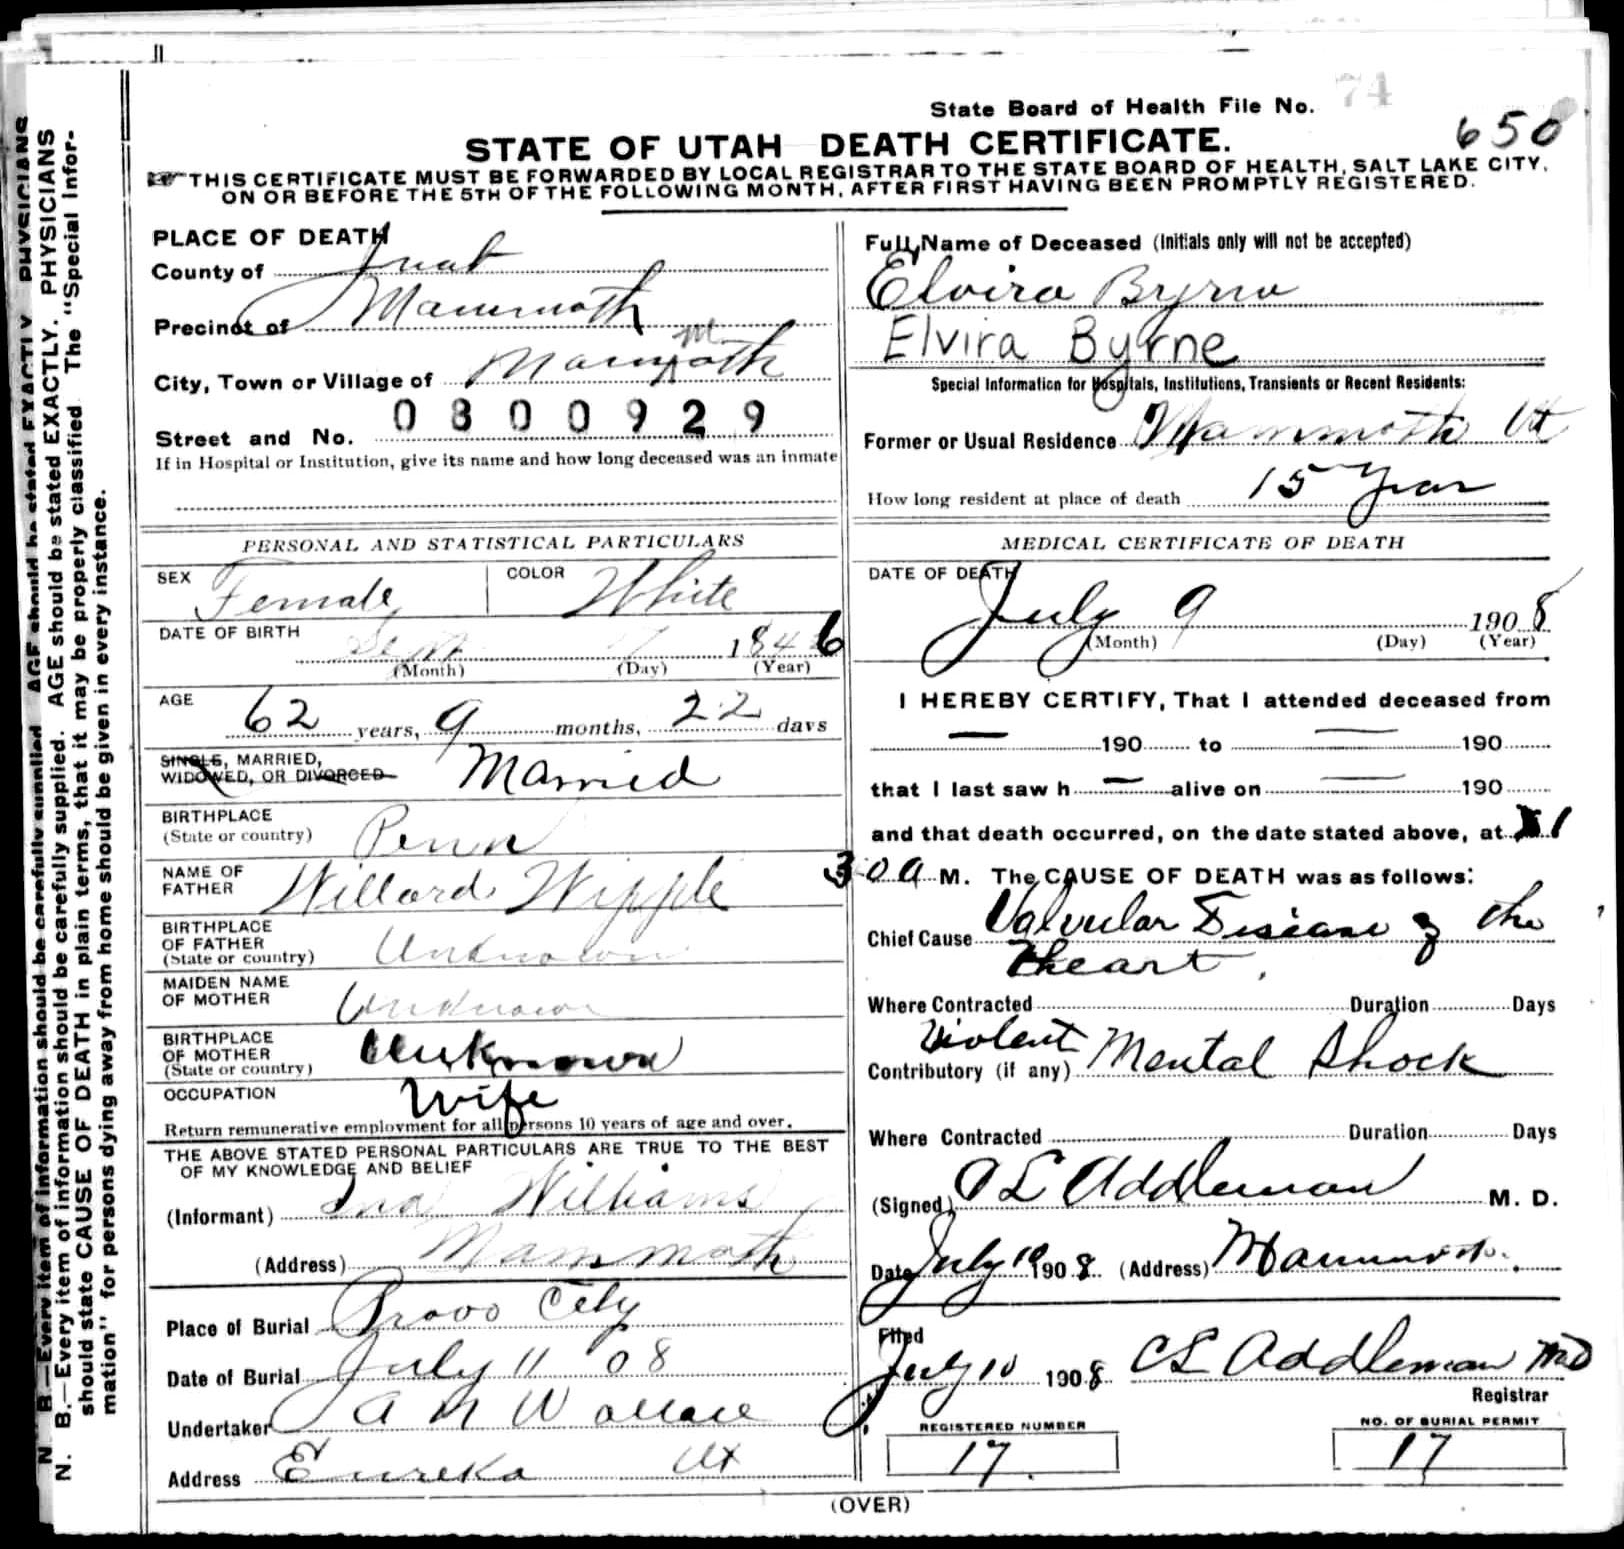 74
State Board of Health File No.
650
STATE OF UTAH DEATH CERTIFICATE.
THIS CERTIFICATE MUST BE FORWARDED BY LOCAL REGISTRAR TO THE STATE BOARD OF HEALTH, SALT LAKE CITY,
ON OR BEFORE THE 5TH OF THE FOLLOWING MONTH, AFTER FIRST HAVING BEEN PROMPTLY REGISTERED.
N. B.—Every item of information should be carefully supplied. AGE should be stated EXACTLY. PHYSICIANS
N. B.—Every item of information should be carefully supplied. AGE should be stated EXACTLY. PHYSICIANS
should state CAUSE OF DEATH in plain terms, that it may be properly classified The "Special Infor-
mation" for persons dying away from home should be given in every instance.
PLACE OF DEATH
County of Juab
Precinct of Mammoth
City, Town or Village of Mammoth
Street and No. 0800929
If in Hospital or Institution, give its name and how long deceased was an inmate
PERSONAL AND STATISTICAL PARTICULARS
SEX Female COLOR White
DATE OF BIRTH Sept 1846
(Month) (Day) (Year)
AGE
62 years, 9 months, 22 days
SINGLE, MARRIED,
WIDOWED, OR DIVORCED Married
BIRTHPLACE
(State or country) Penn
NAME OF
FATHER Willard Wipple
BIRTHPLACE
OF FATHER
(State or country) Unknown
MAIDEN NAME
OF MOTHER Unknown
BIRTHPLACE
OF MOTHER
(State or country) Unknown
OCCUPATION Wife
Return remunerative employment for all persons 10 years of age and over.
THE ABOVE STATED PERSONAL PARTICULARS ARE TRUE TO THE BEST
OF MY KNOWLEDGE AND BELIEF
(Informant) Ina Williams
(Address) Mammoth
Place of Burial Provo City
Date of Burial July 11 08
Undertaker A N Wallace
Address Eureka Ut
Full Name of Deceased (Initials only will not be accepted)
Elvira Byrne
Elvira Byrne
Special Information for Hospitals, Institutions, Transients or Recent Residents:
Former or Usual Residence Mammoth Ut
How long resident at place of death 15 Year
MEDICAL CERTIFICATE OF DEATH
DATE OF DEATH
July 9 1908
(Month) (Day) (Year)
I HEREBY CERTIFY, That I attended deceased from
— 190 to — 190
that I last saw h — alive on — 190
and that death occurred, on the date stated above, at 1
30 a M. The CAUSE OF DEATH was as follows:
Chief Cause Valvular Disease of the
Heart.
Where Contracted Duration Days
Violent
Contributory (if any) Mental Shock
Where Contracted Duration Days
(Signed) A L Addleman M. D.
Date July 10 1908 (Address) Mammoth.
Filed
July 10 1908 A L Addleman MD
Registrar
REGISTERED NUMBER
17.
NO. OF BURIAL PERMIT
17
(OVER)